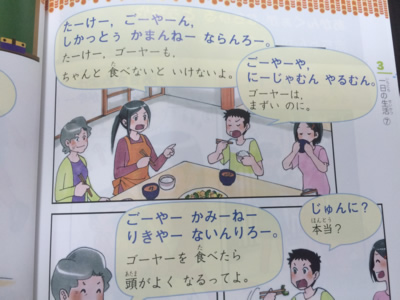 たーけー，ごーやーん，
しかっとぅ かまんねー ならんろー。
たーけー，ゴーヤーも，
ちゃんと 食べないと いけないよ。
ごーやーや，
にーじゃむん やるむん。
ゴーヤーは，
まずい のに。
3
一日の生活⑦
ごーやー かみーねー
りきやー ないんりろー。
ゴーヤーを 食べたら
頭がよく なるってよ。
じゅんに？
本当？